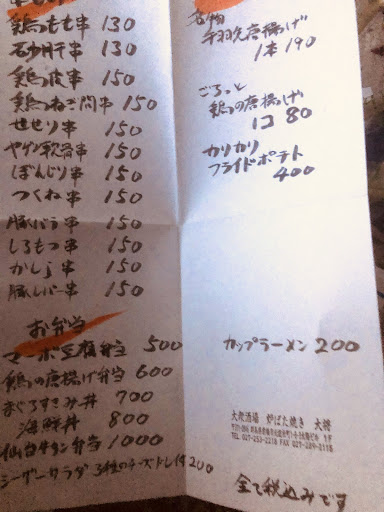 鶏もも串 130
砂肝串 130
鶏皮串 150
鶏ねぎ間串 150
せせり串 150
ヤゲン軟骨串 150
ぼんじり串 150
つくね串 150
豚バラ串 150
しろもつ串 150
かしら串 150
豚レバー串 150
お弁当
マーボ豆腐弁当 500
鶏の唐揚げ弁当 600
まぐろすきみ丼 700
海鮮丼 800
仙台牛タン弁当 1000
シーザーサラダ 3種のチーズドレ付 200
名物
手羽先唐揚げ
1本 190
ごろっと
鶏の唐揚げ
1コ 80
カリカリ
フライドポテト
400
カップラーメン 200
大衆酒場 炉ばた焼き 大将
全て税込みです